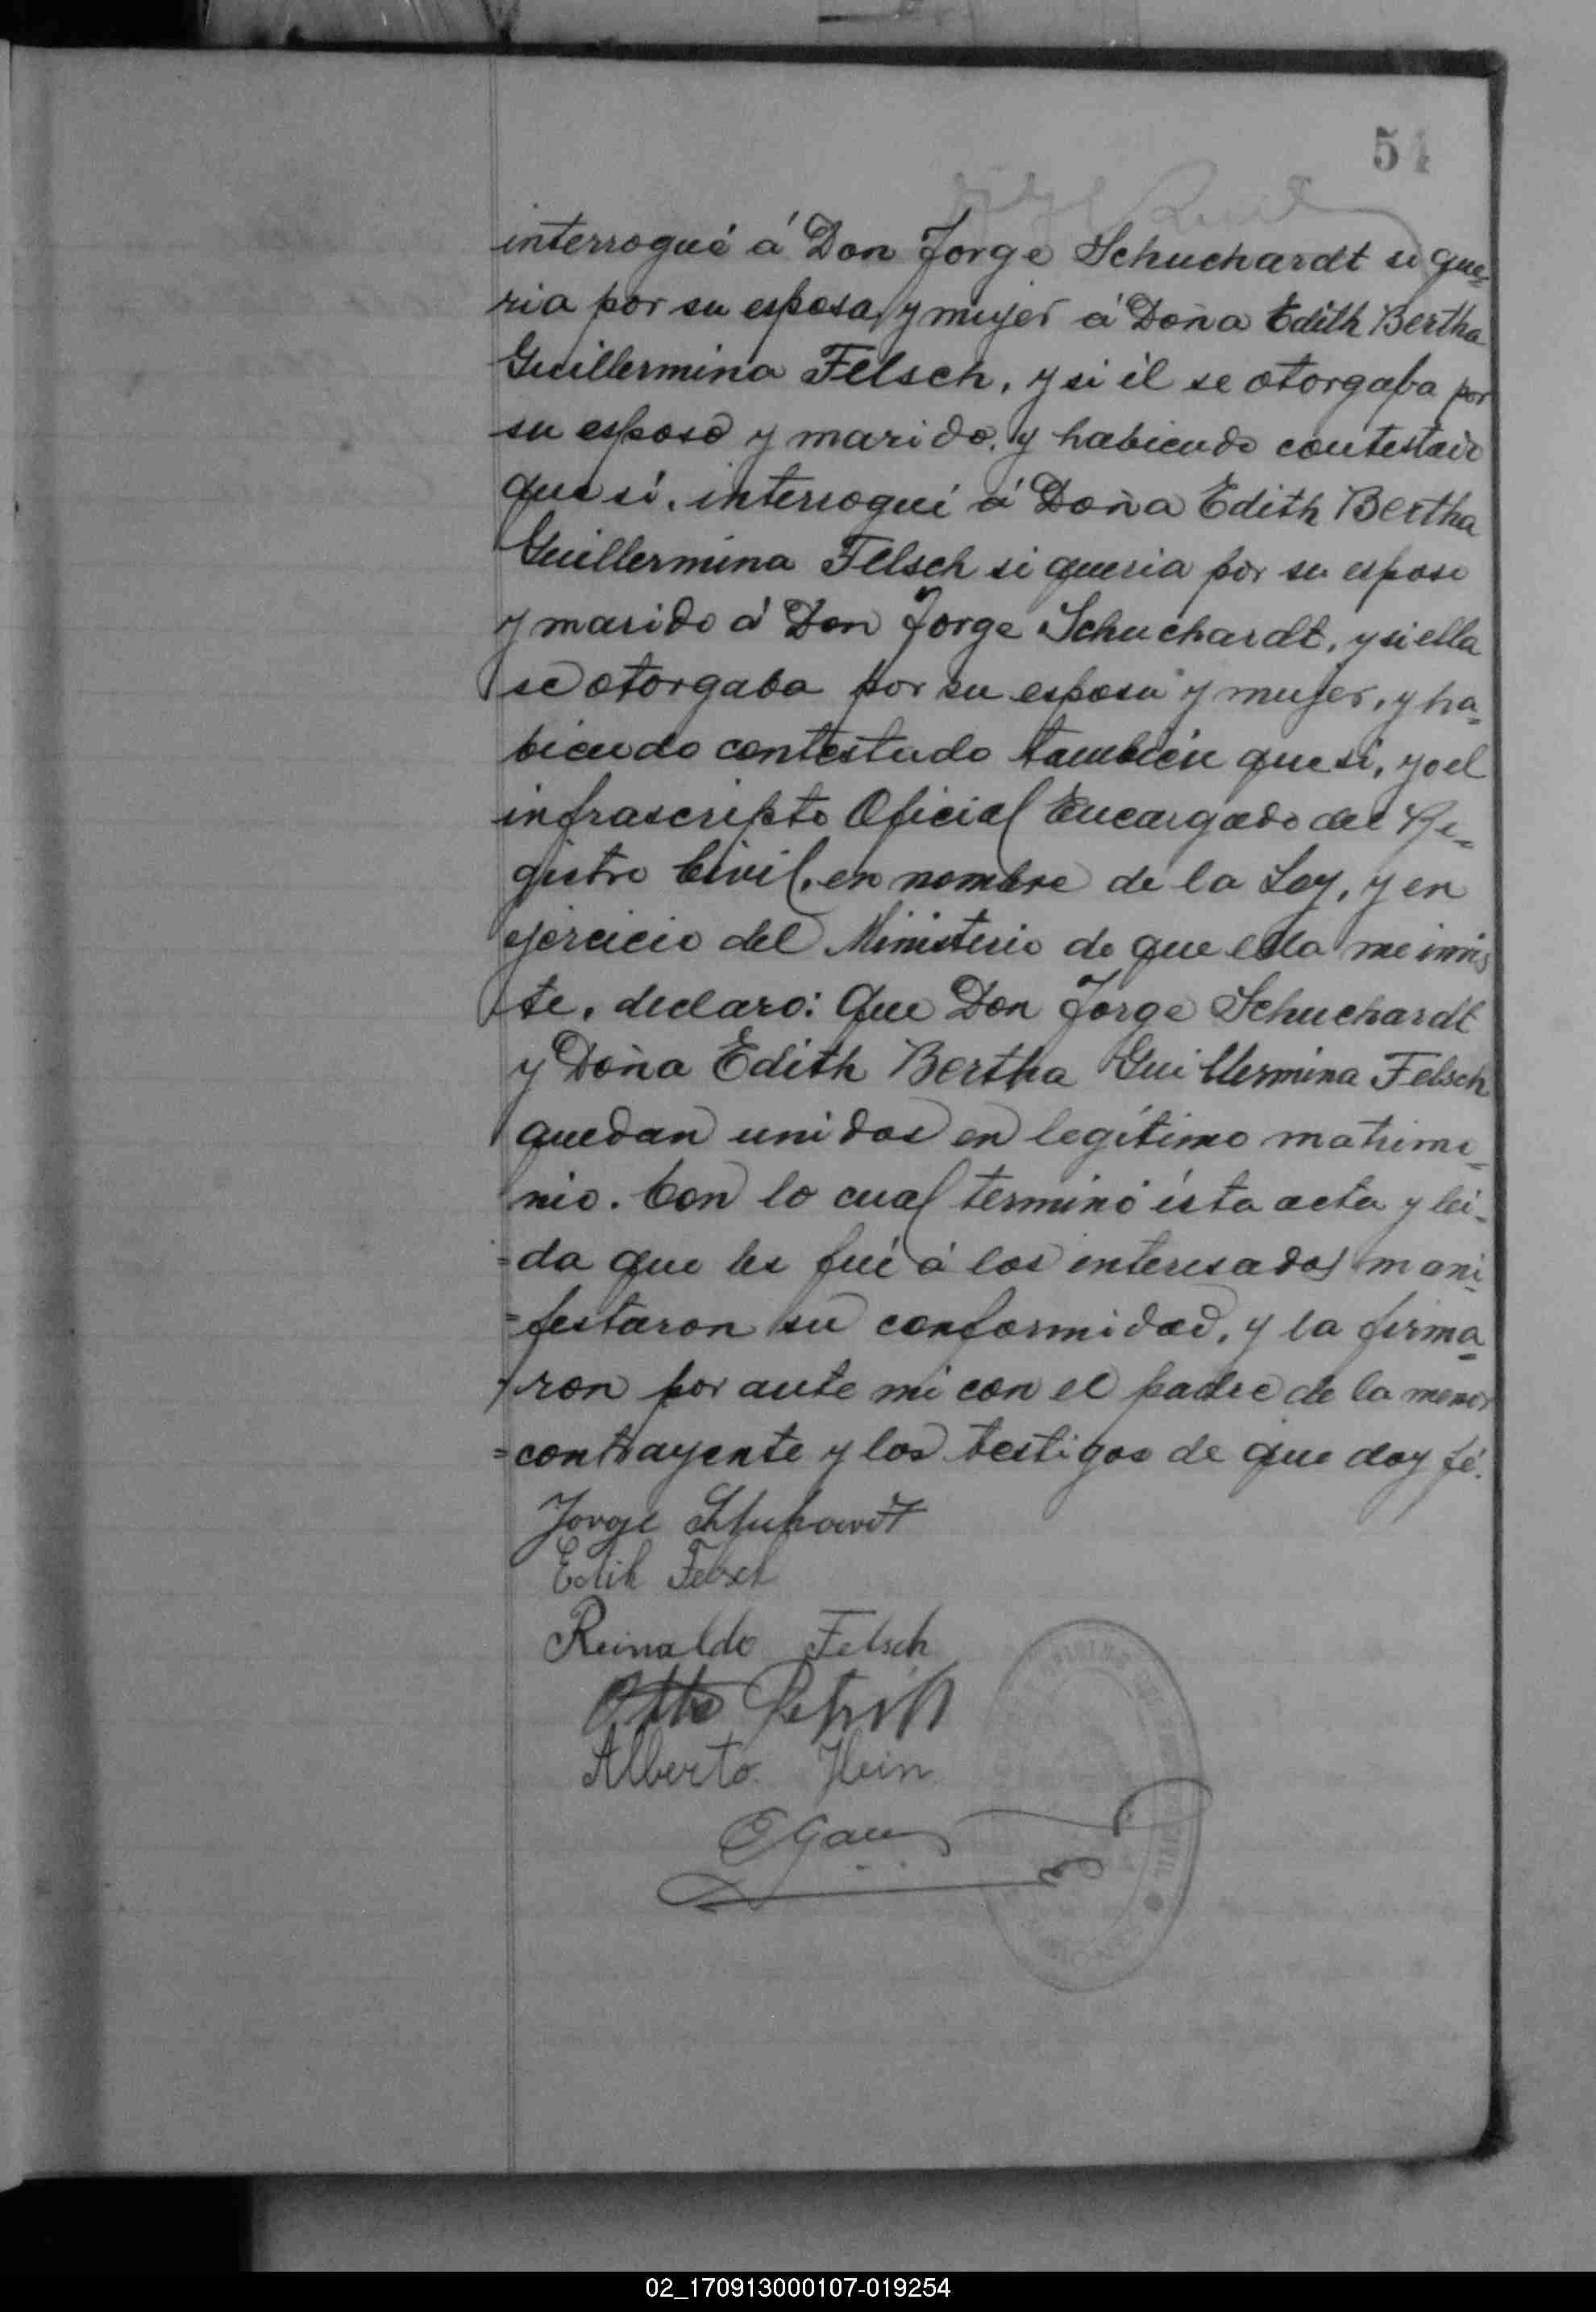 54
interrogué á Don Jorge Schuchardt si que=
ria por su esposa y mujer á Doña Edith Bertha
Guillermina Felsch, y si él se otorgaba por
su esposo y marido, y habiendo contestado
que sí, interrogué á Doña Edith Bertha
Guillermina Felsch si queria por su esposo
y marido á Don Jorge Schuchardt, y si ella
se otorgaba por su esposa y mujer, y ha=
biendo contestado también que sí, yo el
infrascripto Oficial Encargado del Re=
gistro Civil, en nombre de la Ley, y en
ejercicio del Ministerio de que ella me invis
te, declaro: Que Don Jorge Schuchardt
y Doña Edith Bertha Guillermina Felsch
quedan unidos en legítimo matrimo=
nio. Con lo cual terminó ésta acta y lei=
=da que les fué á los interesados mani=
=festaron su conformidad, y la firma=
ron por ante mi con el padre de la menor
=contrayente y los testigos de que doy fé.
Jorge Schuhardt
Edith Felsch
Reinaldo Felsch
Otto
Alberto Hein
02_170913000107-019254